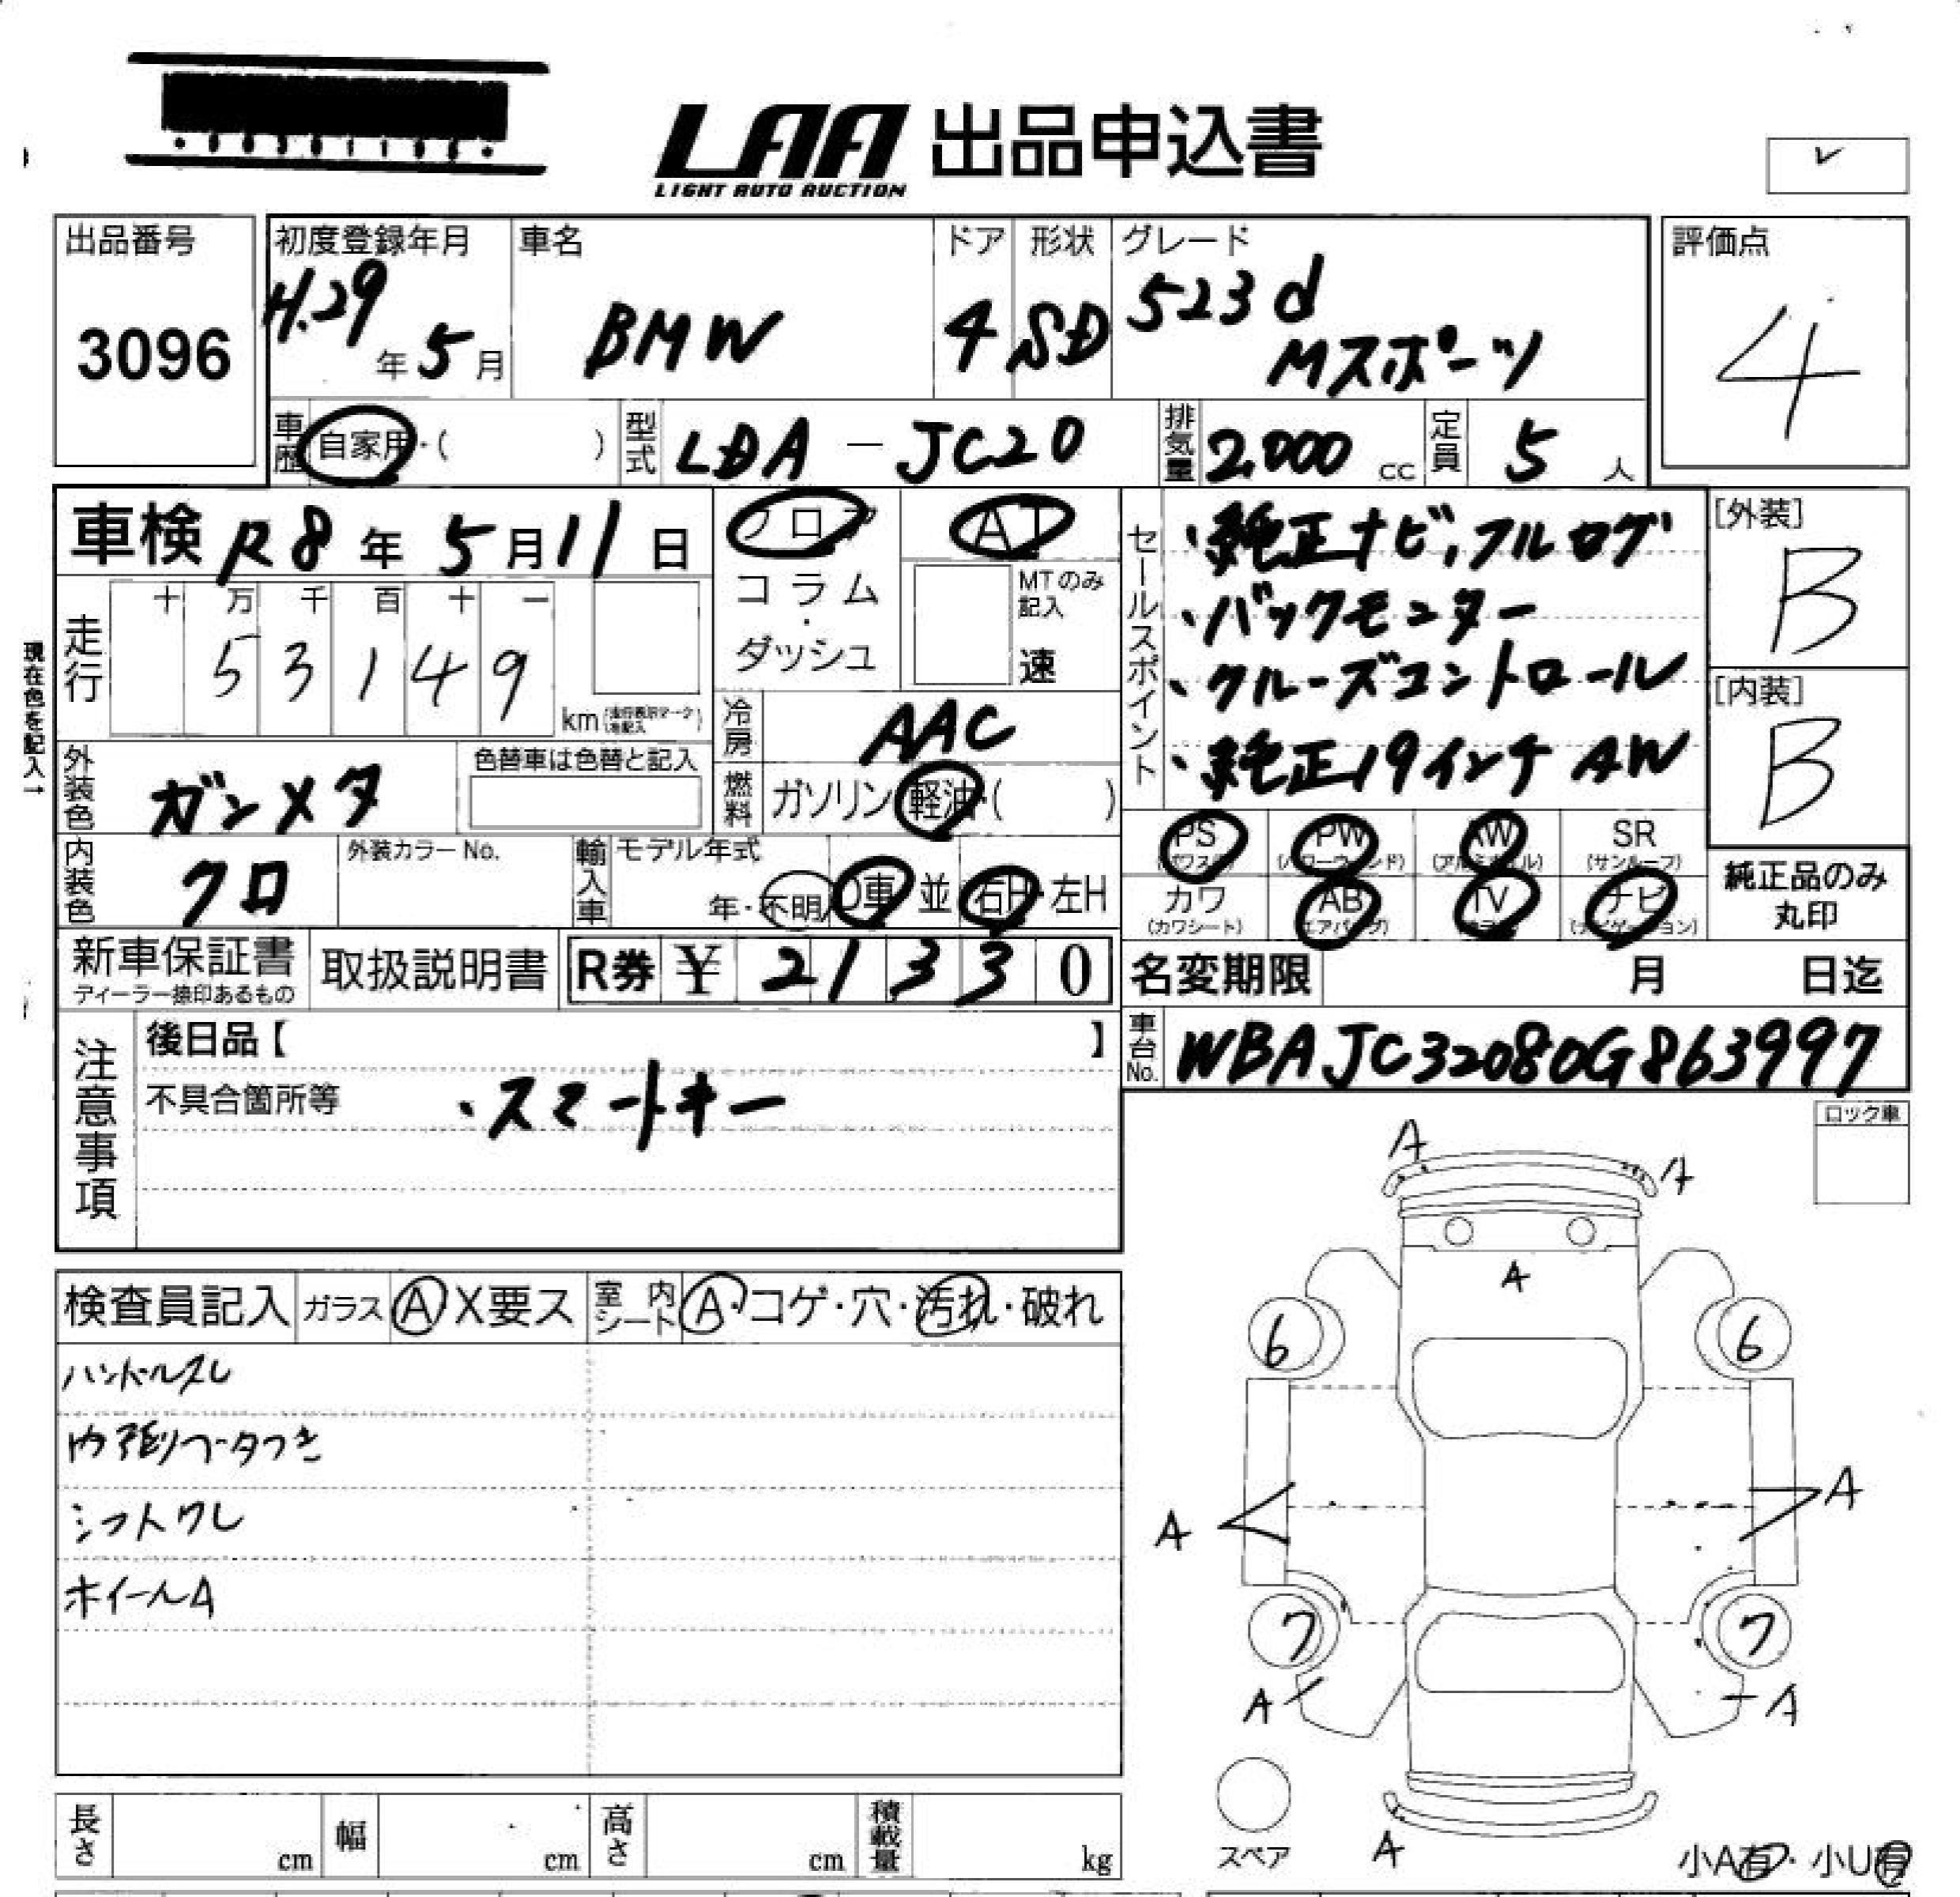 LAA 出品申込書
LIGHT AUTO AUCTION
出品番号
3096
初度登録年月
H.29年5月
車名
BMW
ドア
4
形状
SD
グレード
523d
Mスポーツ
評価点
4
車歴 自家用・( )
型式 LDA-JC20
排気量 2,000 cc
定員 5 人
車検 R8年5月11日
フロア
コラム
・
ダッシュ
AT
MTのみ
記入
速
走行
十 万 千 百 十 一
5 3 1 4 9
km
現在色を記入→
冷房 AAC
燃料 ガソリン・軽油・( )
外装色 ガンメタ
色替車は色替と記入
内装色 クロ
外装カラーNo.
輸入車
モデル年式
年・不明
D車 並 右H・左H
セールスポイント
・純正ナビ,フルセグ
・バックモニター
・クルーズコントロール
・純正19インチAW
[外装]
B
[内装]
B
PS PW AW SR
(パワステ) (パワーウィンド) (アルミホイル) (サンルーフ)
カワ AB TV ナビ
(カワシート) (エアバッグ) (テレビ) (ナビゲーション)
純正品のみ
丸印
新車保証書
ディーラー捺印あるもの
取扱説明書
R券 ¥ 21330
名変期限 月 日迄
車台No. WBAJC32080G863997
注意事項
後日品【 】
不具合箇所等
・スマートキー
ロック車
検査員記入
ガラス A X要ス
室内シート A・コゲ・穴・汚れ・破れ
ハンドルスレ
内張リフータつき
シフトワレ
ホイールA
A
A
A
6
6
A
A
7
7
A
A
スペア
A
小A有・小U有
長さ cm
幅 cm
高さ cm
積載量 kg